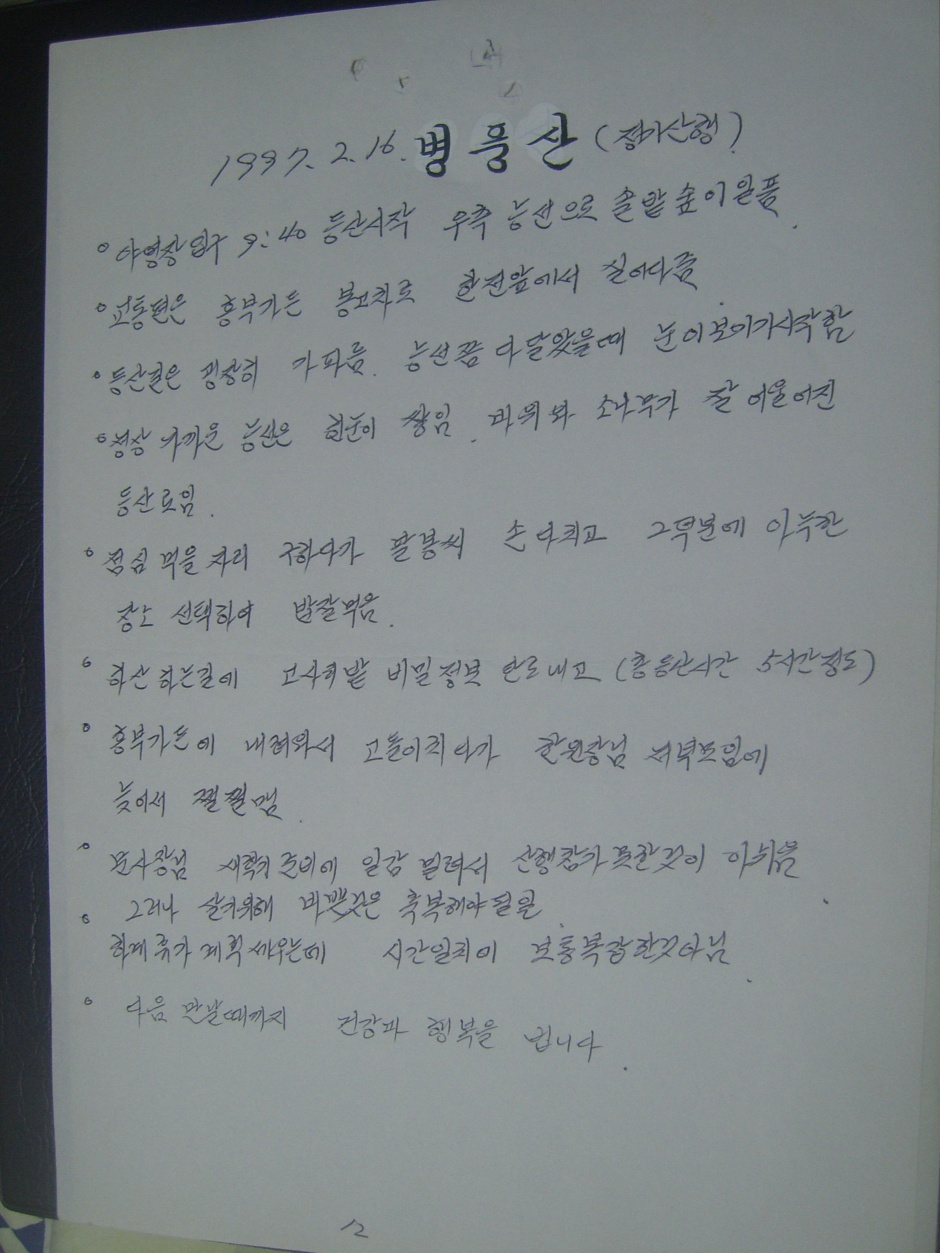 1997. 2. 16. 병풍산 (정기산행)
° 야영장 입구 9:40 등산시작 우측 능선으로 솔밭 숲이 일품.
° 교통편은 흥부가든 봉고차로 한전앞에서 실어다줌.
° 등산길은 굉장히 가파름. 능선쯤 다달았을때 눈이 보이기 시작함
° 정상 가까운 능선은 흰눈이 쌓임. 바위와 소나무가 잘 어울어진
등산로임.
° 점심 먹을 자리 구하다가 손 다치고 그덕분에 아늑한
장소 선택하여 밥잘먹음.
° 하산 하는길에 고사리밭 비밀정보 안로내고 (총등산시간 5시간정도)
° 흥부가든에 내려와서 고돌이치다가 한원장님 부부모임에
늦어서 쩔쩔맴.
° 문사장님 새학기 준비에 일감 밀려서 산행참가 못한것이 아쉬움
그러나 살기위해 바쁜것은 축복해야 될일.
° 하계 휴가 계획 세우는데 시간일치이 보통복잡한것아님.
° 다음 만날때까지 건강과 행복을 빕니다.
12